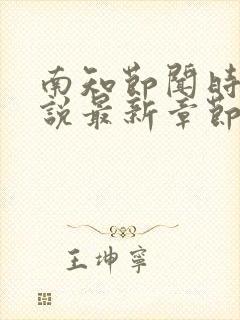 南知節聞時
說最新章節
王坤寧